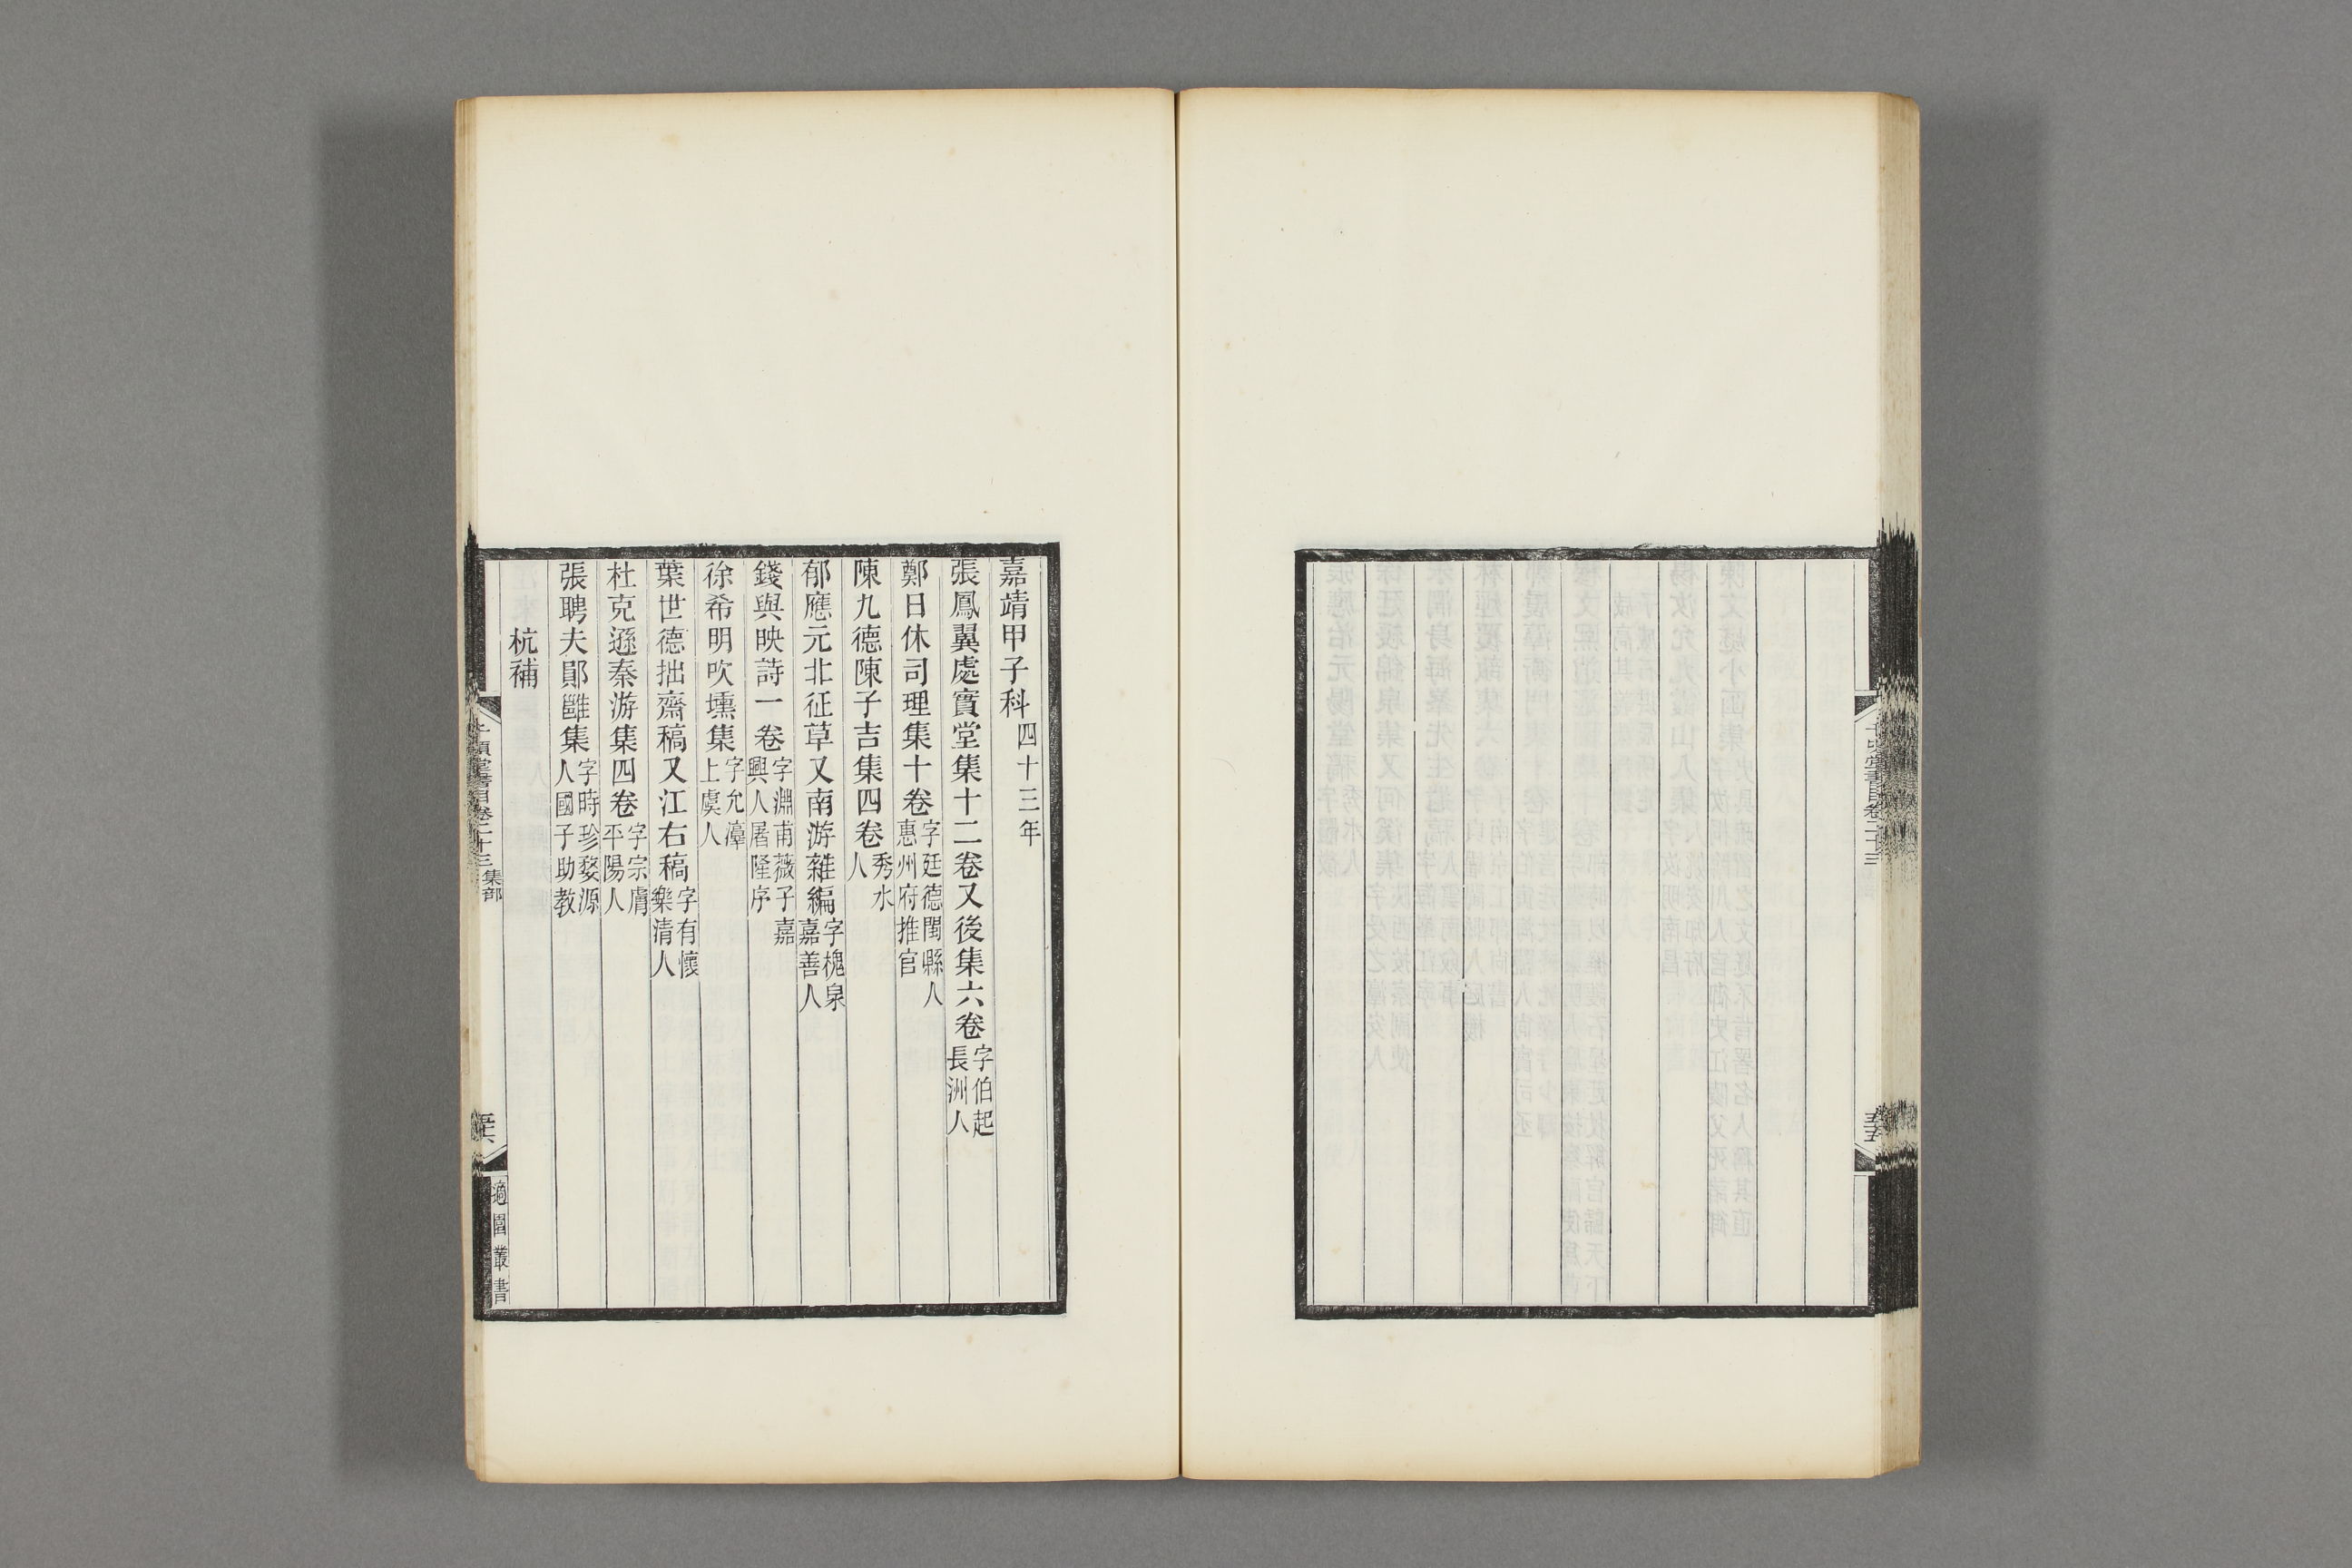 千頃堂書目卷二十三
嘉靖甲子科四十三年
張鳳翼處實堂集十二卷又後集六卷字伯起長洲人
鄭日休司理集十卷字廷德閩縣人惠州府推官
陳九德陳子吉集四卷秀水人
郁應元北征草又南游雜編字槐泉嘉善人
錢與映詩一卷字淵甫薇子嘉興人屠隆序
徐希明吹壎集字允濂上虞人
葉世德拙齋稿又江右稿字有懷樂清人
杜克遜秦游集四卷字宗膚平陽人
張聘夫郢雛集字時珍婺源人國子助教
杭補
千頃堂書目卷二十三 集部
適園叢書